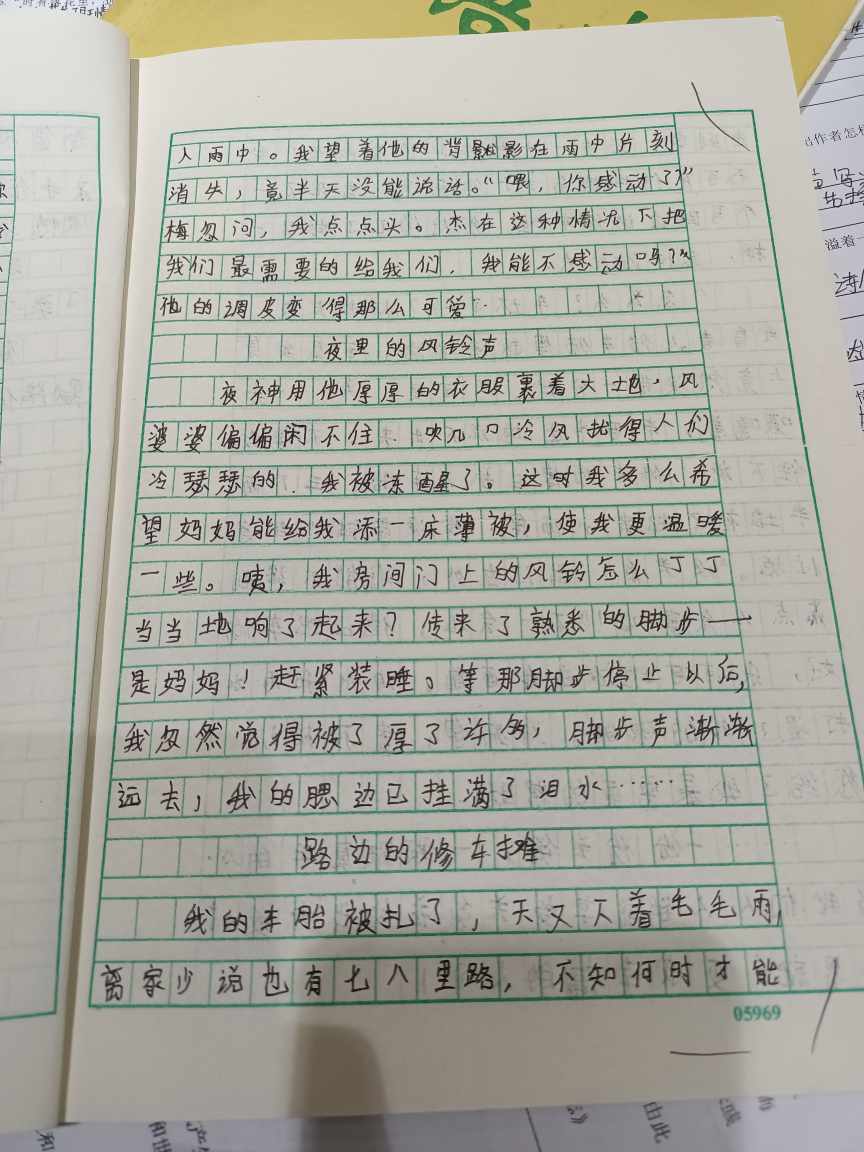 人雨中。我望着他的背影在雨中片刻
消失，竟半天没能说话。“喂，你感动了？”
梅忽问，我点点头。杰在这种情况下把
我们最需要的给我们，我能不感动吗？”
他的调皮变得那么可爱.
夜里的风铃声
夜神用他厚厚的衣服裹着大地，风
婆婆偏偏闲不住.吹几口冷风扰得人们
冷瑟瑟的.我被冻醒了。这时我多么希
望妈妈能给我添一床薄被，使我更温暖
一些。咦，我房间门上的风铃怎么丁丁
当当地响了起来？传来了熟悉的脚步——
是妈妈！赶紧装睡。等那脚步停止以后，
我忽然觉得被了厚了许多，脚步声渐渐
远去，我的腮边已挂满了泪水……
路边的修车摊
我的车胎被扎了，天又下着毛毛雨，
离家少说也有七八里路，不知何时才能
05969
由此